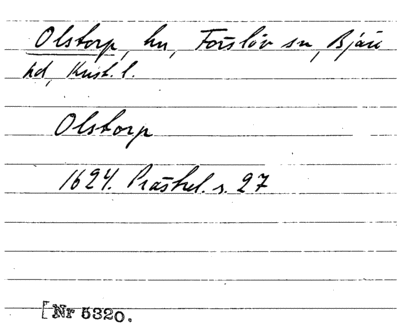 Olstorp, hn, Förslöv sn, Bjäre
hd, Krist. l.
Olstorp
1624. Prästrel. s. 27
[Nr 5320.